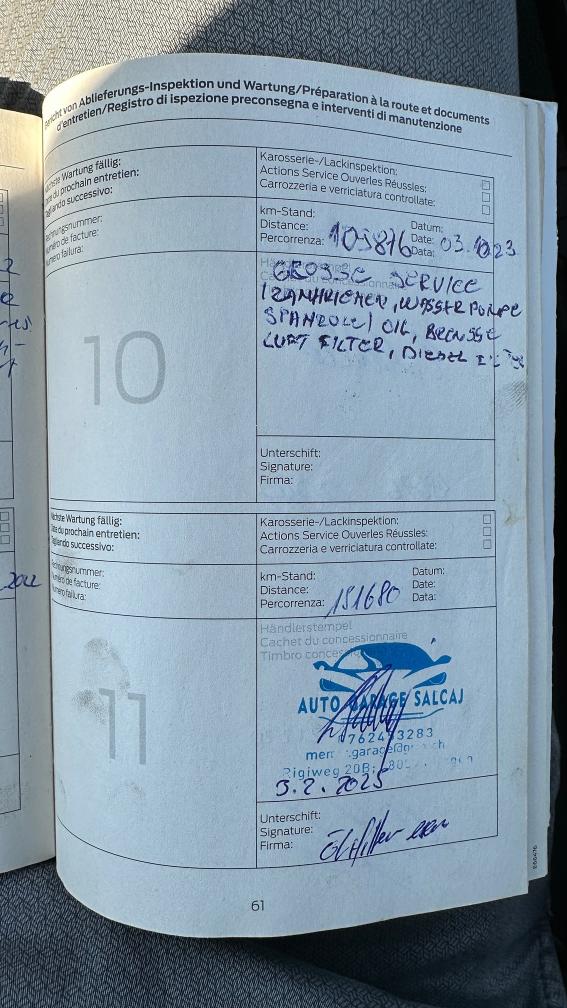 von Ablieferungs-Inspektion und Wartung/Préparation à la route et documents
d'entretien/Registro di ispezione preconsegna e interventi di manutenzione
Nächste Wartung fällig:
Date du prochain entretien:
Tagliando successivo:
Karosserie-/Lackinspektion:
Actions Service Ouverles Réussles:
Carrozzeria e verriciatura controllate:
Rechnungsnummer:
Numéro de facture:
Numero failura:
km-Stand:
Distance:
Percorrenza:
Datum:
Date: 03.10.23
Data:
GROSSE SERVICE
ZAHNRIEMEN, WASSER PUMPE
OIL, BREMSSE
LUFT FILTER, DIESEL
10
Unterschift:
Signature:
Firma:
Nächste Wartung fällig:
Date du prochain entretien:
Tagliando successivo:
Karosserie-/Lackinspektion:
Actions Service Ouverles Réussles:
Carrozzeria e verriciatura controllate:
Rechnungsnummer:
Numéro de facture:
Numero failura:
km-Stand:
Distance:
Percorrenza: 151680
Datum:
Date:
Data:
Händlerstempel
Cachet du concessionnaire
Timbro
11
AUTO GARAGE SALCAJ
Rigiweg 20B
3.2.2025
Unterschift:
Signature:
Firma:
61